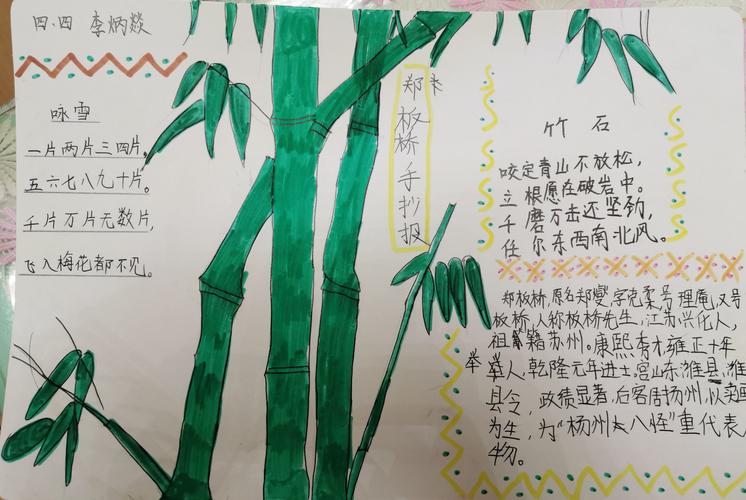 四.四 李炳燚
咏雪
一片两片三四片。
五六七八九十片。
千片万片无数片,
飞入梅花都不见。
郑板桥手抄报
竹 石
咬定青山不放松,
立根愿在破岩中。
千磨万击还坚劲,
任尔东西南北风。
郑板桥,原名郑燮,字克柔号理庵,又号
板桥,人称板桥先生,江苏兴化人,
祖籍苏州。康熙秀才雍正十年
举人,乾隆元年进士。官山东潍县,潍
县令,政绩显著,后客居扬州,以卖画
为生,为“杨州八怪”重代表
物。